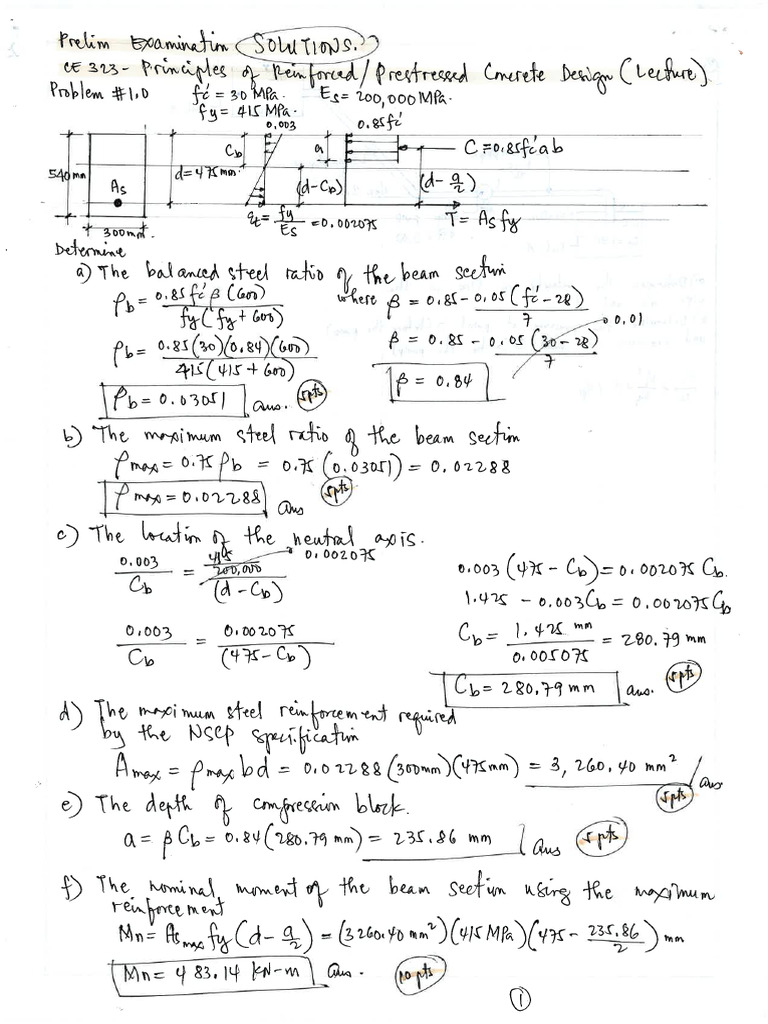 Prelim Examination SOLUTIONS.
CE 323 - Principles of Reinforced/Prestressed Concrete Design (Lecture)
Problem #1.0 fc' = 30 MPa. Es = 200,000 MPa.
fy = 415 MPa.
0.003 0.85fc'
Cb a C = 0.85fc'ab
540mm d = 475mm. (d-Cb) (d - a/2)
As
εt = fy/Es = 0.002075 T = As fy
300mm.
Determine
a) The balanced steel ratio of the beam section
ρb = 0.85 fc' β (600) / fy (fy + 600) where β = 0.85 - 0.05 (fc' - 28) / 7
0.01
ρb = 0.85(30)(0.84)(600) / 415(415 + 600) β = 0.85 - 0.05 (30 - 28) / 7
ρb = 0.03051 ans. 5pts β = 0.84
b) The maximum steel ratio of the beam section
ρmax = 0.75 ρb = 0.75 (0.03051) = 0.02288
ρmax = 0.02288 ans 5pts
c) The location of the neutral axis.
0.003 / Cb = 415/200,000 / (d - Cb) 0.002075 0.003 (475 - Cb) = 0.002075 Cb.
1.425 - 0.003Cb = 0.002075 Cb
0.003 / Cb = 0.002075 / (475 - Cb) Cb = 1.425 mm / 0.005075 = 280.79 mm
Cb = 280.79 mm ans. 5pts
d) The maximum steel reinforcement required
by the NSCP specification
Amax = ρmax bd = 0.02288 (300mm)(475mm) = 3,260.40 mm² ans
5pts
e) The depth of compression block.
a = β Cb = 0.84 (280.79 mm) = 235.86 mm ans 5pts
f) The nominal moment of the beam section using the maximum
reinforcement
Mn = As max fy (d - a/2) = (3260.40 mm²)(415 MPa)(475 - 235.86/2) mm
Mn = 483.14 kN-m ans. 10pts
1